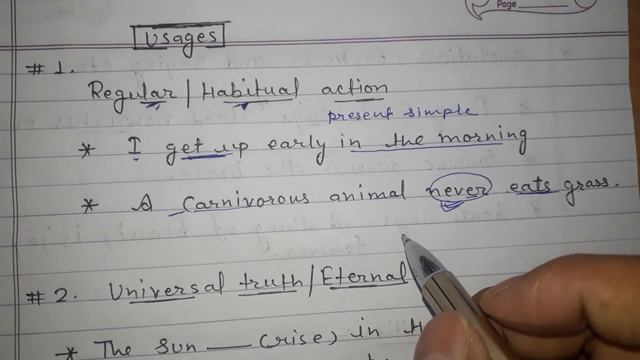 Page
Usages
# 1.
Regular / Habitual action
present simple
* I get up early in the morning
* A Carnivorous animal never eats grass.
# 2. Universal truth / Eternal
* The Sun ___ (rise) in